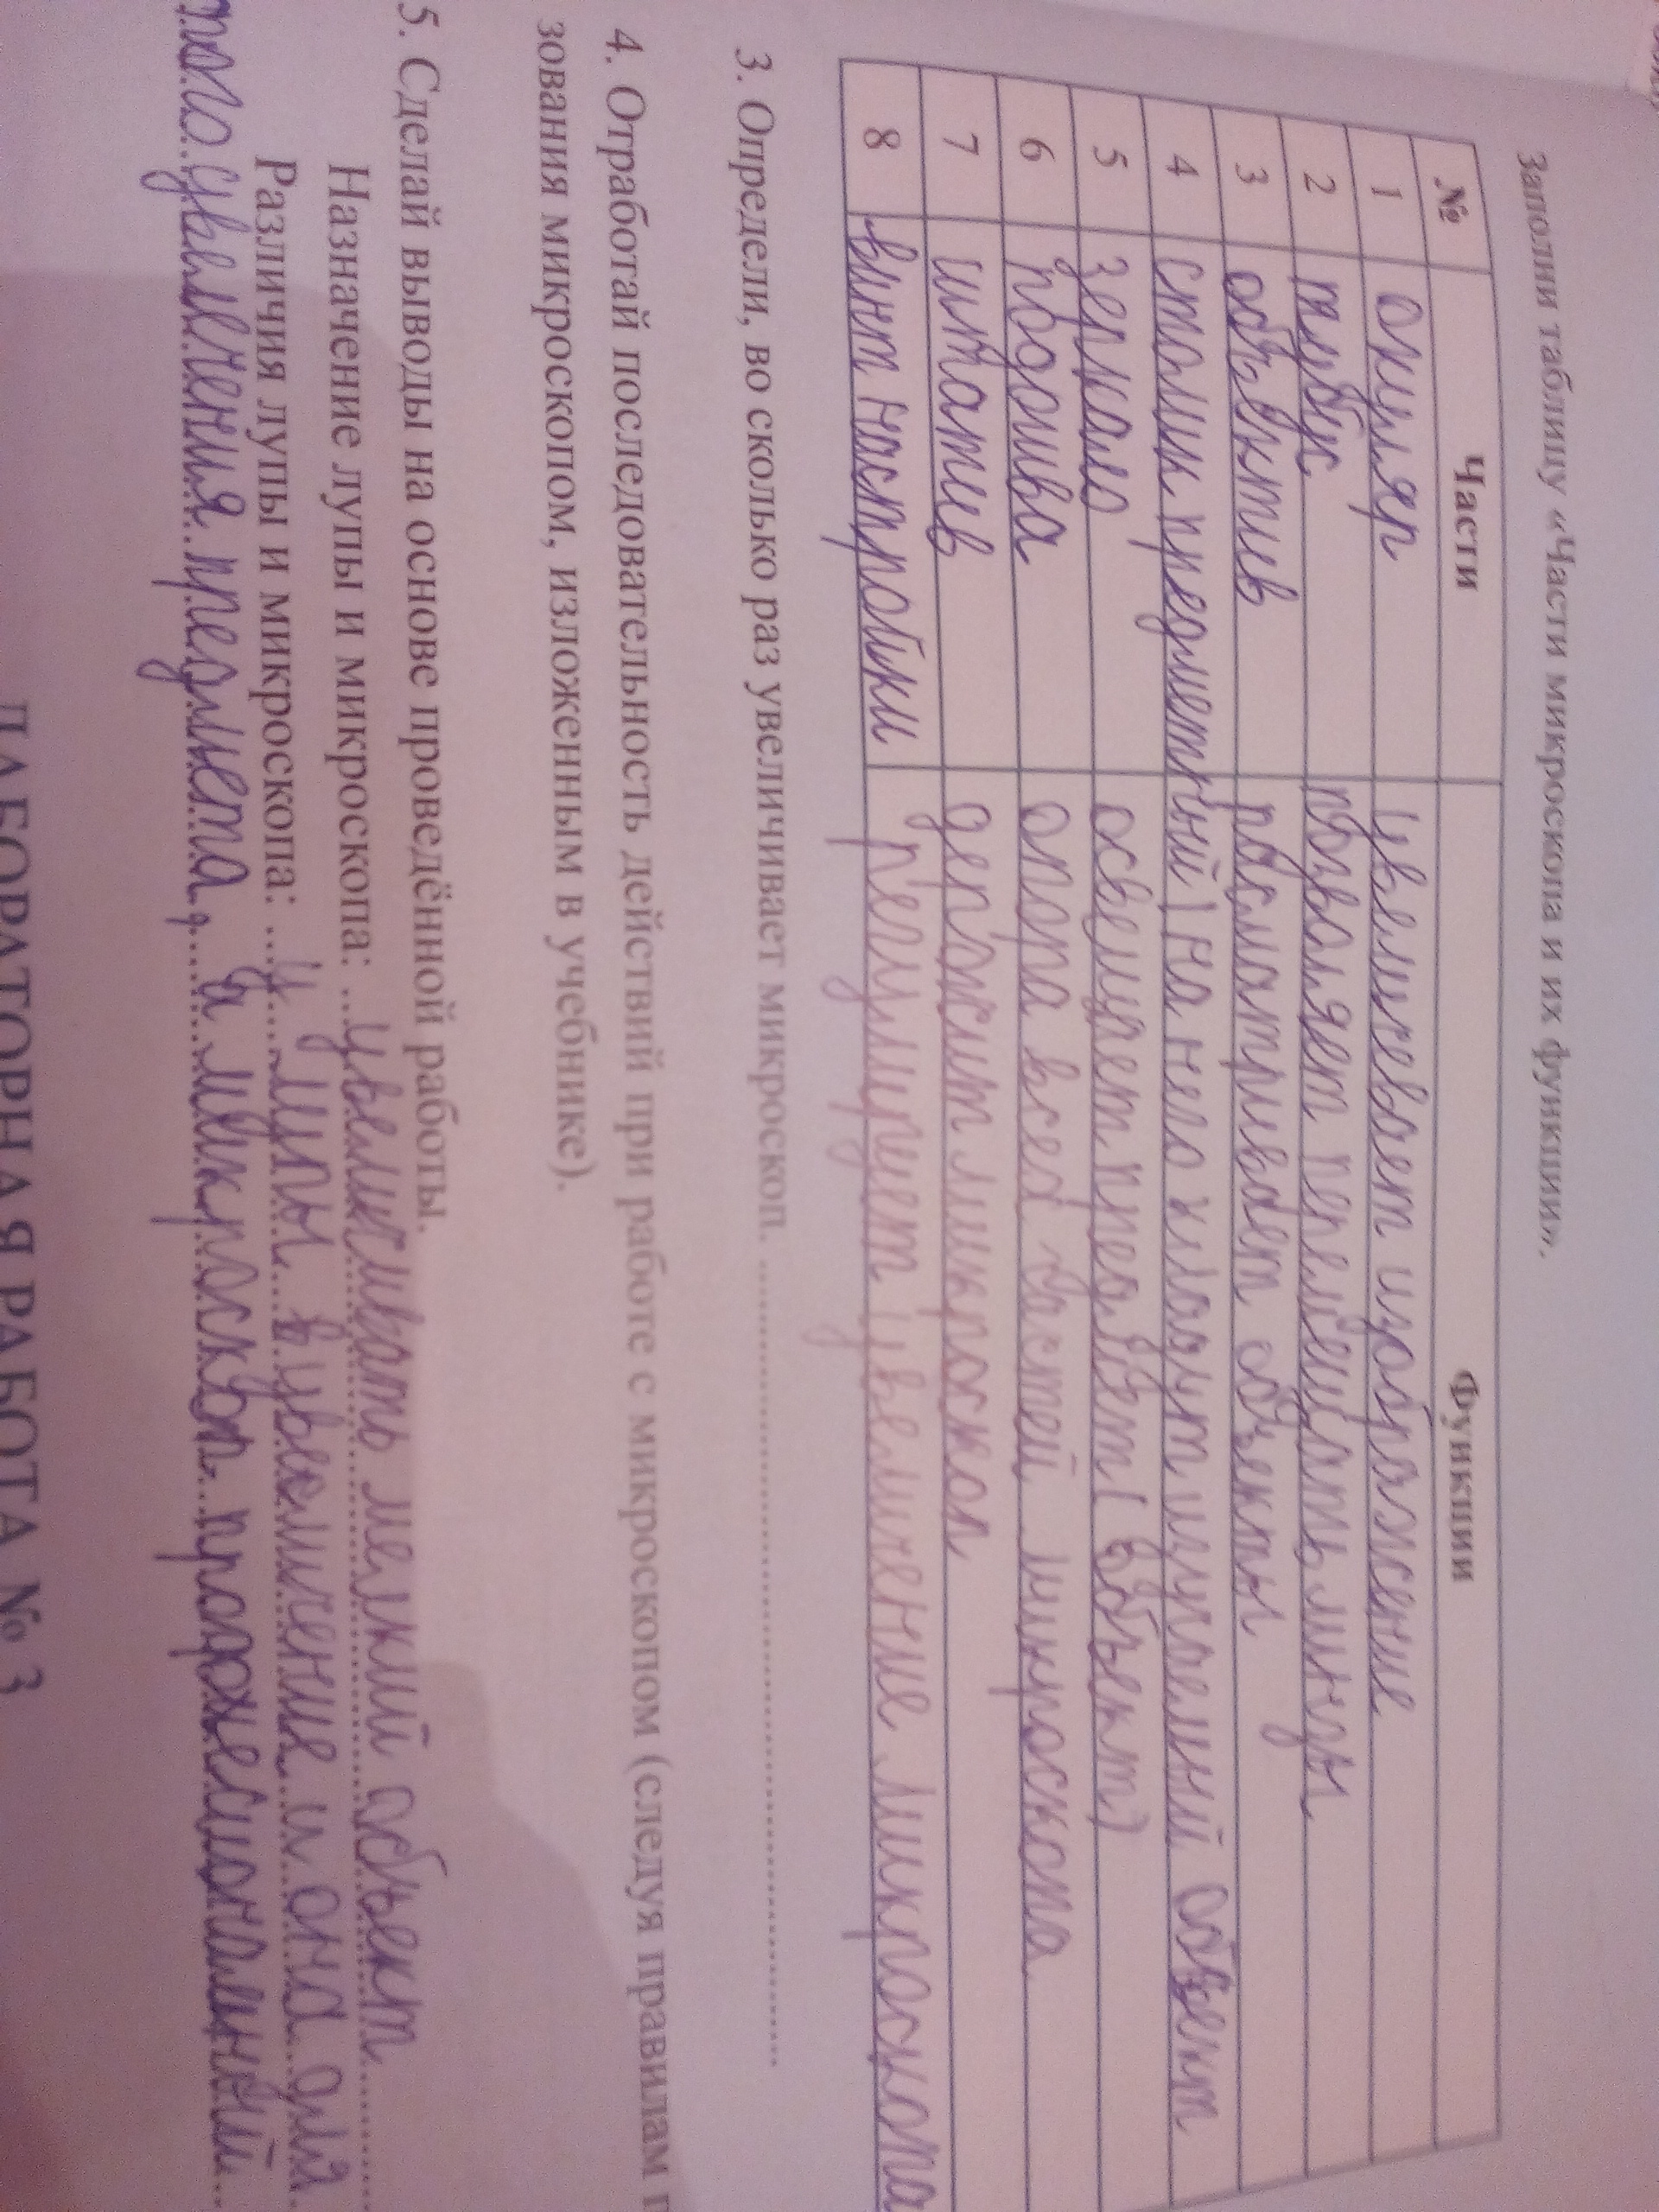 Заполни таблицу «Части микроскопа и их функции».
№ Части Функции
1 окуляр увеличевает изображение
2 тубус позволяет перемещать линзы
3 объэктив расматривает объекты
4 столик предметный на него кладут изучаемый объект
5 зеркало освещает предмет (объект)
6 подошва опора всех частей микроскопа
7 штатив держит микроскоп
8 винт настройки регулирует увеличение микроскопа
3. Определи, во сколько раз увеличивает микроскоп.
4. Отработай последовательность действий при работе с микроскопом (следуя правилам п
зования микроскопом, изложенным в учебнике).
5. Сделай выводы на основе проведённой работы.
Назначение лупы и микроскопа: увеличивать мелкий объект
Различия лупы и микроскопа: У лупы увеоличение и она для
того увелечения предмета, а микроскоп
ЛАБОРАТОРНАЯ РАБОТА № 3